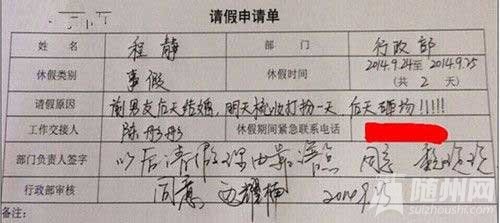 请假申请单
姓名 程静 部门 行政部
休假类别 事假 休假时间 2014.9.24至2014.9.25
(共2天)
请假原因 前男友后天结婚,明天梳妆打扮一天,后天砸场!!!!!
工作交接人 陈彤彤 休假期间紧急联系电话
部门负责人签字 以后请假理由靠谱点 同意
行政部审核 同意
备注:
随州网
suizhoushi.com